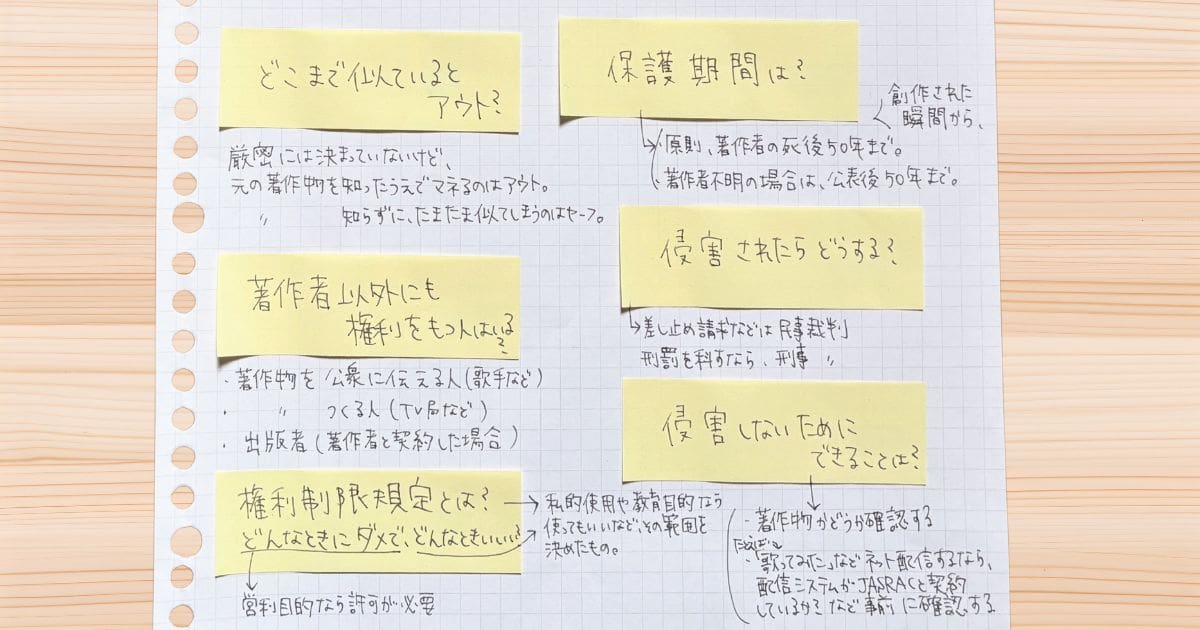 どこまで似ていると
アウト?
厳密には決まっていないけど、
元の著作物を知ったうえでマネるのはアウト。
〃 知らずに、たまたま似てしまうのはセーフ。
著作者以外にも
権利をもつ人はいる?
・著作物を公衆に伝える人(歌手など)
・ 〃 つくる人(TV局など)
・出版者(著作者と契約した場合)
権利制限規定とは?
どんなときにダメで、どんなときいいい?
→私的使用や教育目的なら
使ってもいいなど、その範囲を
決めたもの。
営利目的なら許可が必要
保護期間は?
創作された
瞬間から、
原則、著作者の死後50年まで。
著作者不明の場合は、公表後50年まで。
侵害されたらどうする?
差し止め請求などは民事裁判
刑罰を科すなら、刑事 〃
侵害しないために
できることは?
・著作物かどうか確認する
たとえば
・「歌ってみた」などネット配信するなら、
配信システムがJASRACと契約
しているか?など事前に確認する